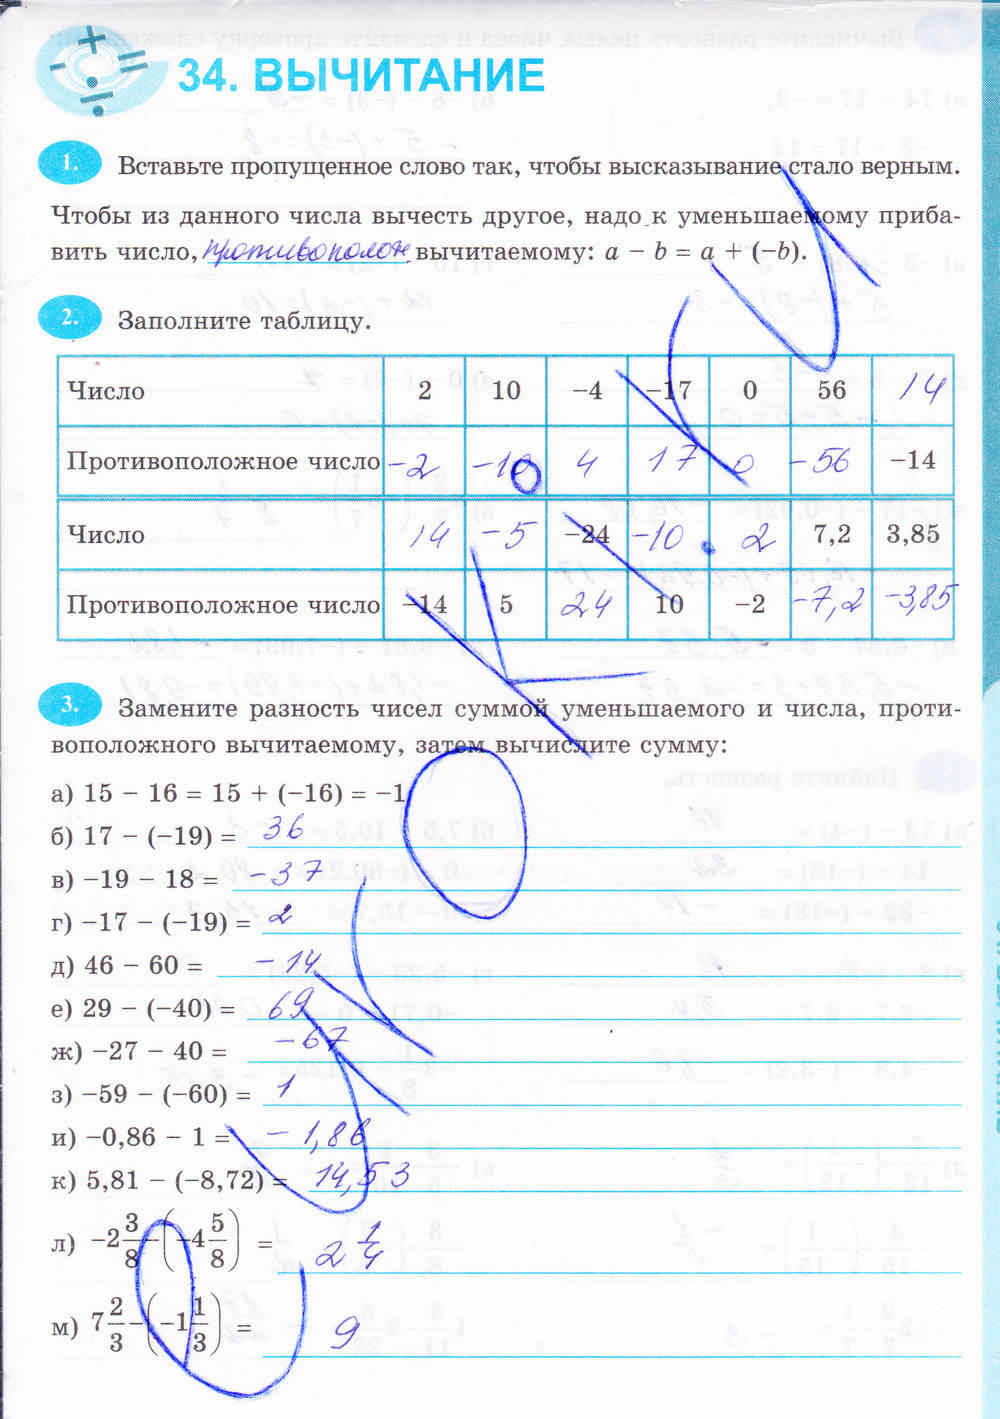 34. ВЫЧИТАНИЕ
1. Вставьте пропущенное слово так, чтобы высказывание стало верным.
Чтобы из данного числа вычесть другое, надо к уменьшаемому приба-
вить число, противополож вычитаемому: a − b = a + (−b).
2. Заполните таблицу.
Число 2 10 −4 −17 0 56 14
Противоположное число −2 −10 4 17 0 −56 −14
Число 14 −5 −24 −10 2 7,2 3,85
Противоположное число −14 5 24 10 −2 −7,2 −3,85
3. Замените разность чисел суммой уменьшаемого и числа, проти-
воположного вычитаемому, затем вычислите сумму:
а) 15 − 16 = 15 + (−16) = −1
б) 17 − (−19) = 36
в) −19 − 18 = −37
г) −17 − (−19) = 2
д) 46 − 60 = −14
е) 29 − (−40) = 69
ж) −27 − 40 = −67
з) −59 − (−60) = 1
и) −0,86 − 1 = −1,86
к) 5,81 − (−8,72) = 14,53
л) −2 3/8 − (−4 5/8) = 2 1/4
м) 7 2/3 − (−1 1/3) = 9